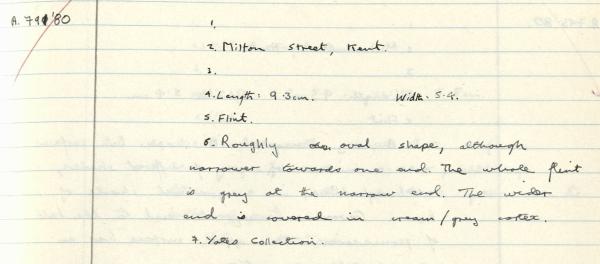 A. 791'80
1.
2. Milton Street, Kent.
3.
4. Length: 9.3cm. Width. 5.4.
5. Flint.
6. Roughly oval shape, although
narrower towards one end. The whole flint
is grey at the narrow end. The wider
end is covered in cream/grey cortex.
7. Yates Collection.